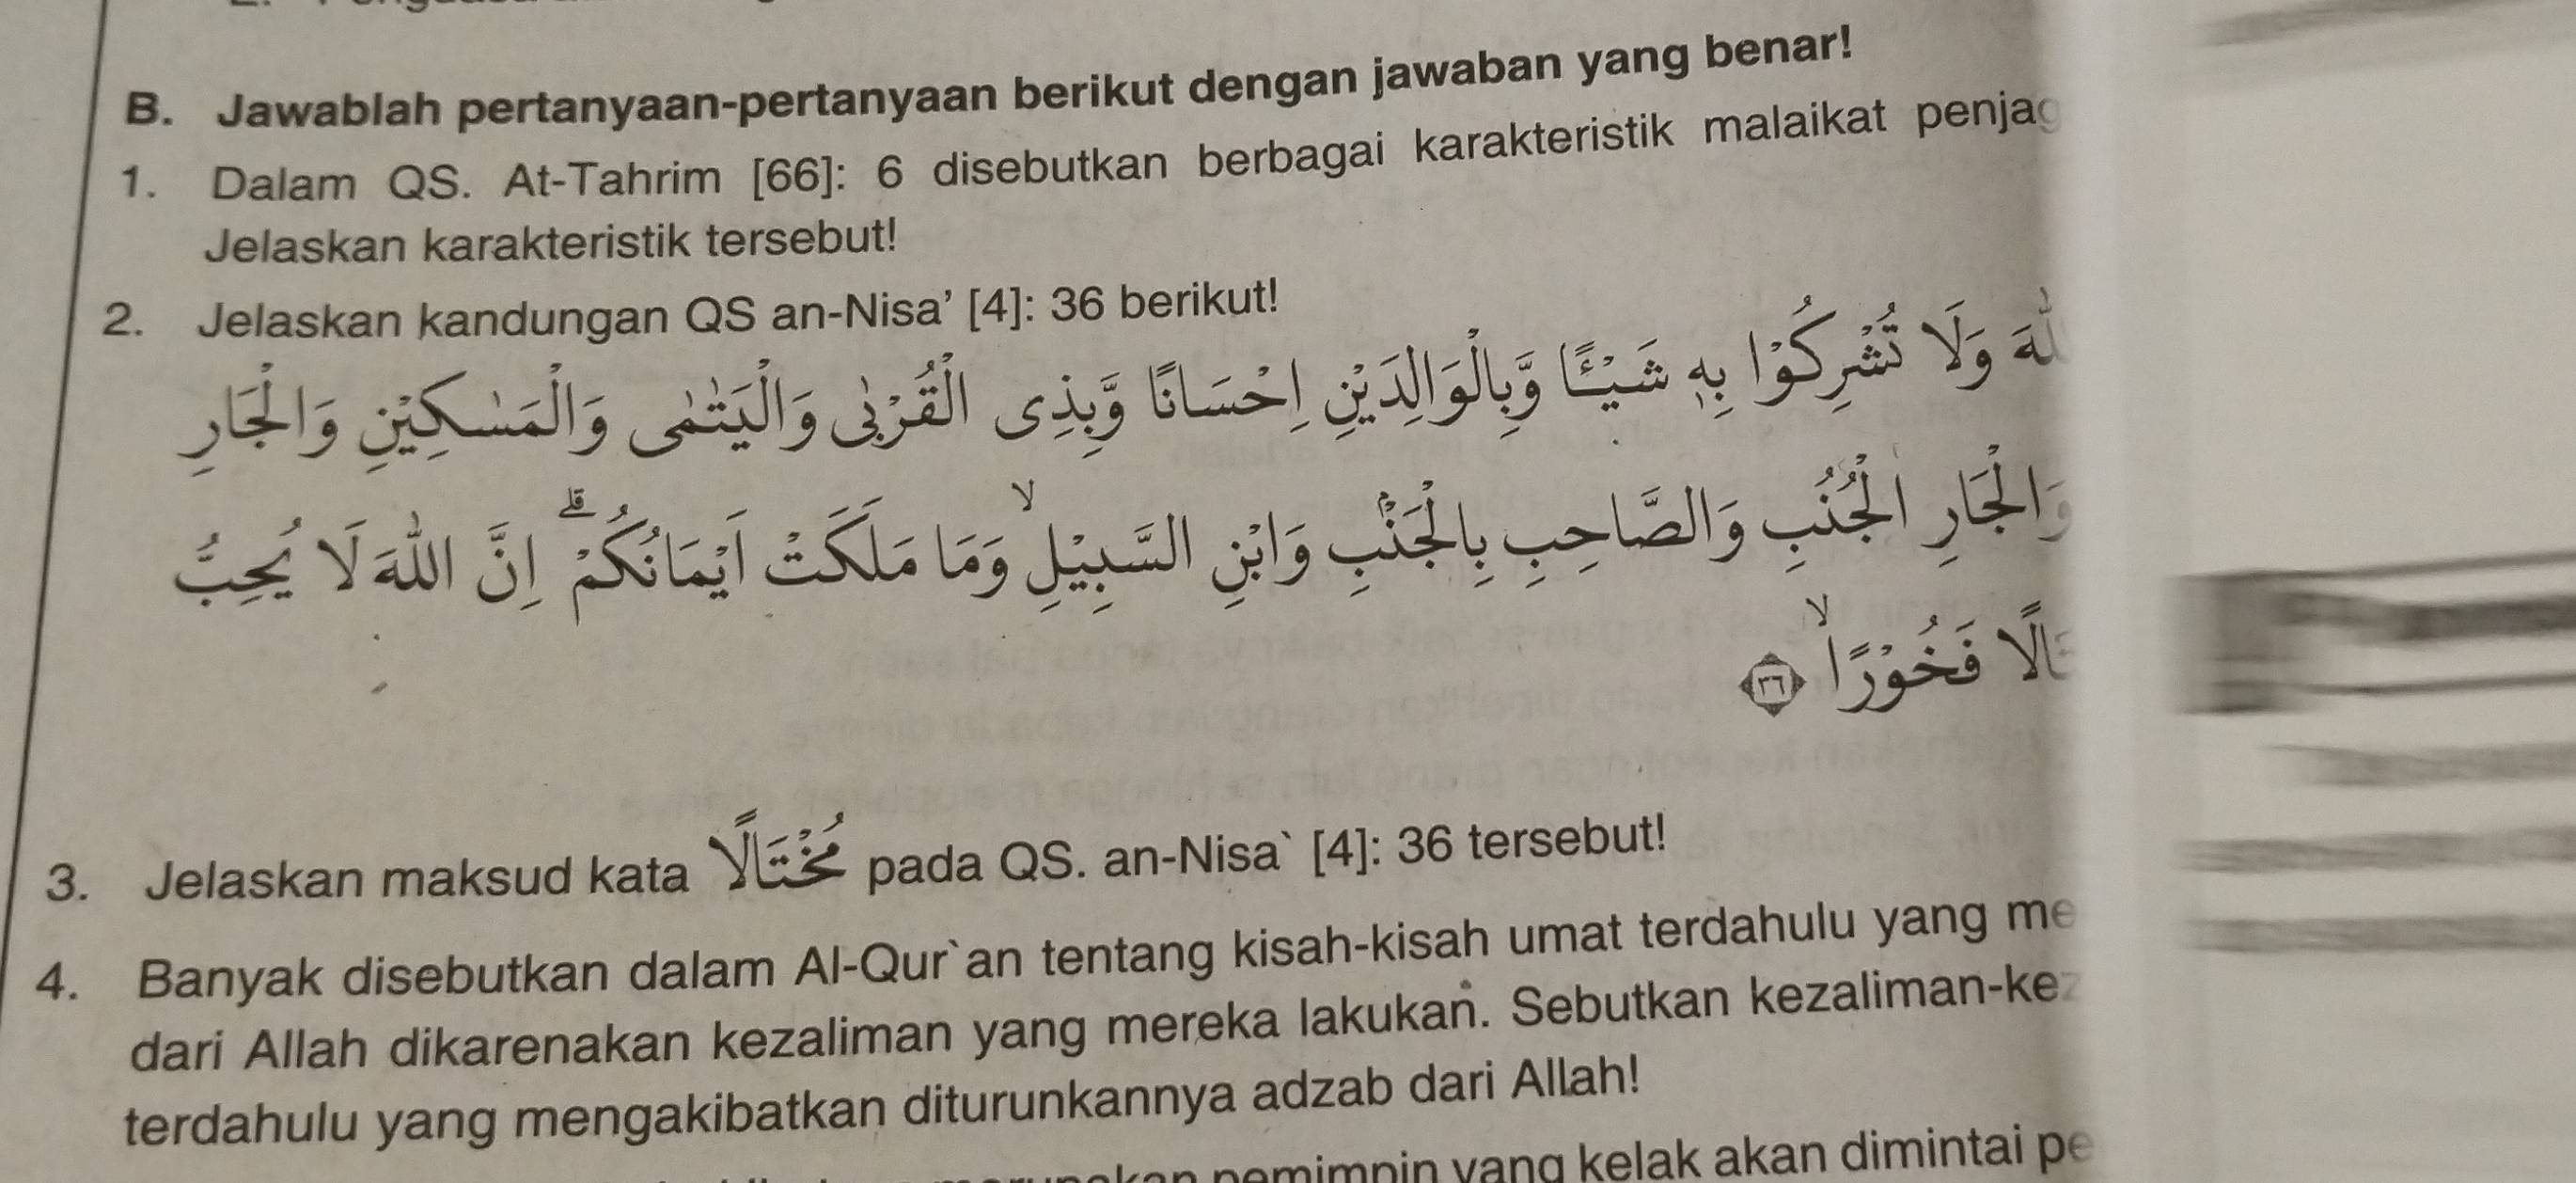 B. Jawablah pertanyaan-pertanyaan berikut dengan jawaban yang benar!
1. Dalam QS. At-Tahrim [66]: 6 disebutkan berbagai karakteristik malaikat
Jelaskan karakteristik tersebut!
2. Jelaskan kandungan QS an-Nisa’ [4]: 36 berikut!
وَلَا تُشْرِكُوْا بِهٖ شَيْـًٔا وَّبِالْوَالِدَيْنِ اِحْسَانًا وَّبِذِى الْقُرْبٰى وَالْيَتٰمٰى وَالْمَسٰكِيْنِ وَالْجَارِ
وَالْجَارِ الْجُنُبِ وَالصَّاحِبِ بِالْجَنْۢبِ وَابْنِ السَّبِيْلِۙ وَمَا مَلَكَتْ اَيْمَانُكُمْۗ اِنَّ اللّٰهَ لَا يُحِبُّ
فَخُوْرًاۙ ٣٦
3. Jelaskan maksud kata مُخْتَالًا pada QS. an-Nisa` [4]: 36 tersebut!
4. Banyak disebutkan dalam Al-Qur`an tentang kisah-kisah umat terdahulu yang
dari Allah dikarenakan kezaliman yang mereka lakukan. Sebutkan
terdahulu yang mengakibatkan diturunkannya adzab dari Allah!
pemimpin yang kelak akan dimintai